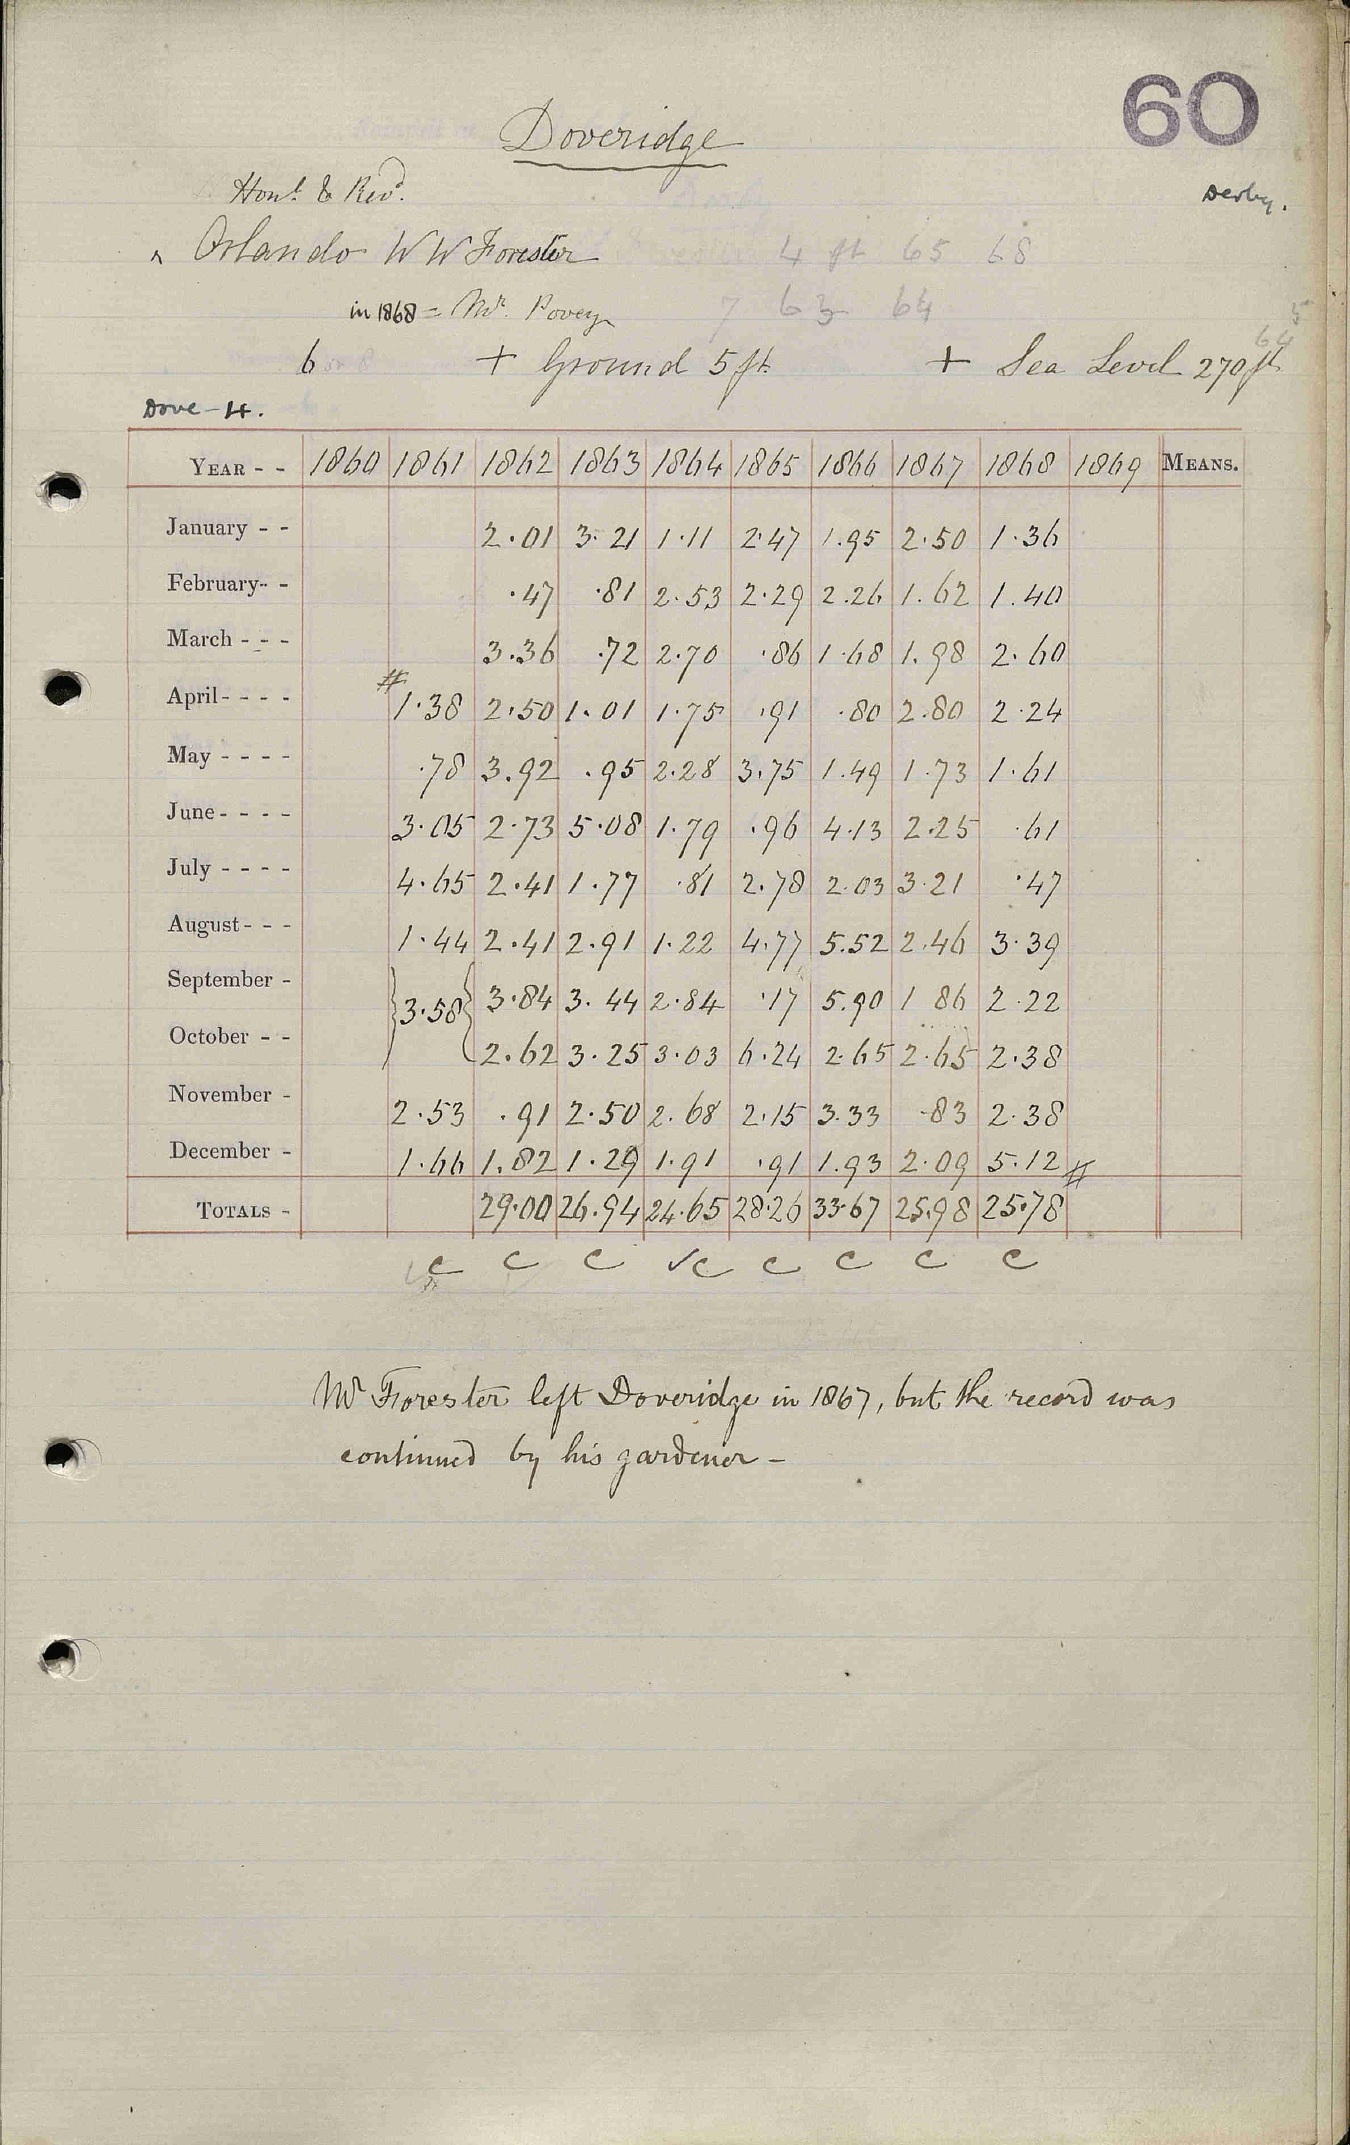 60
Doveridge
Derby.
Honl. & Revd.
Orlando W W Forester
4 ft 65 68
in 1868 = Mr. Povey
7 63 64
5
64
6 + Ground 5 ft. + Sea Level 270 ft
Dove - 4.
YEAR - - 1860 1861 1862 1863 1864 1865 1866 1867 1868 1869 MEANS.
January - - 2.01 3.21 1.11 2.47 1.95 2.50 1.36
February- - .47 .81 2.53 2.29 2.26 1.62 1.40
March - - - 3.36 .72 2.70 .86 1.68 1.98 2.60
April- - - - # 1.38 2.50 1.01 1.75 .91 .80 2.80 2.24
May - - - - .78 3.92 .95 2.28 3.75 1.49 1.73 1.61
June- - - - 3.05 2.73 5.08 1.79 .96 4.13 2.25 .61
July - - - - 4.65 2.41 1.77 .81 2.78 2.03 3.21 .47
August- - - 1.44 2.41 2.91 1.22 4.77 5.52 2.46 3.39
September - } 3.58 { 3.84 3.44 2.84 .17 5.90 1 86 2.22
October - - 2.62 3.25 3.03 6.24 2.65 2.65 2.38
November - 2.53 .91 2.50 2.68 2.15 3.33 .83 2.38
December - 1.66 1.82 1.29 1.91 .91 1.93 2.09 5.12 #
TOTALS - 29.00 26.94 24.65 28.26 33.67 25.98 25.78
c c c ✓c c c c c
Mr Forester left Doveridge in 1867, but the record was
continued by his gardener -